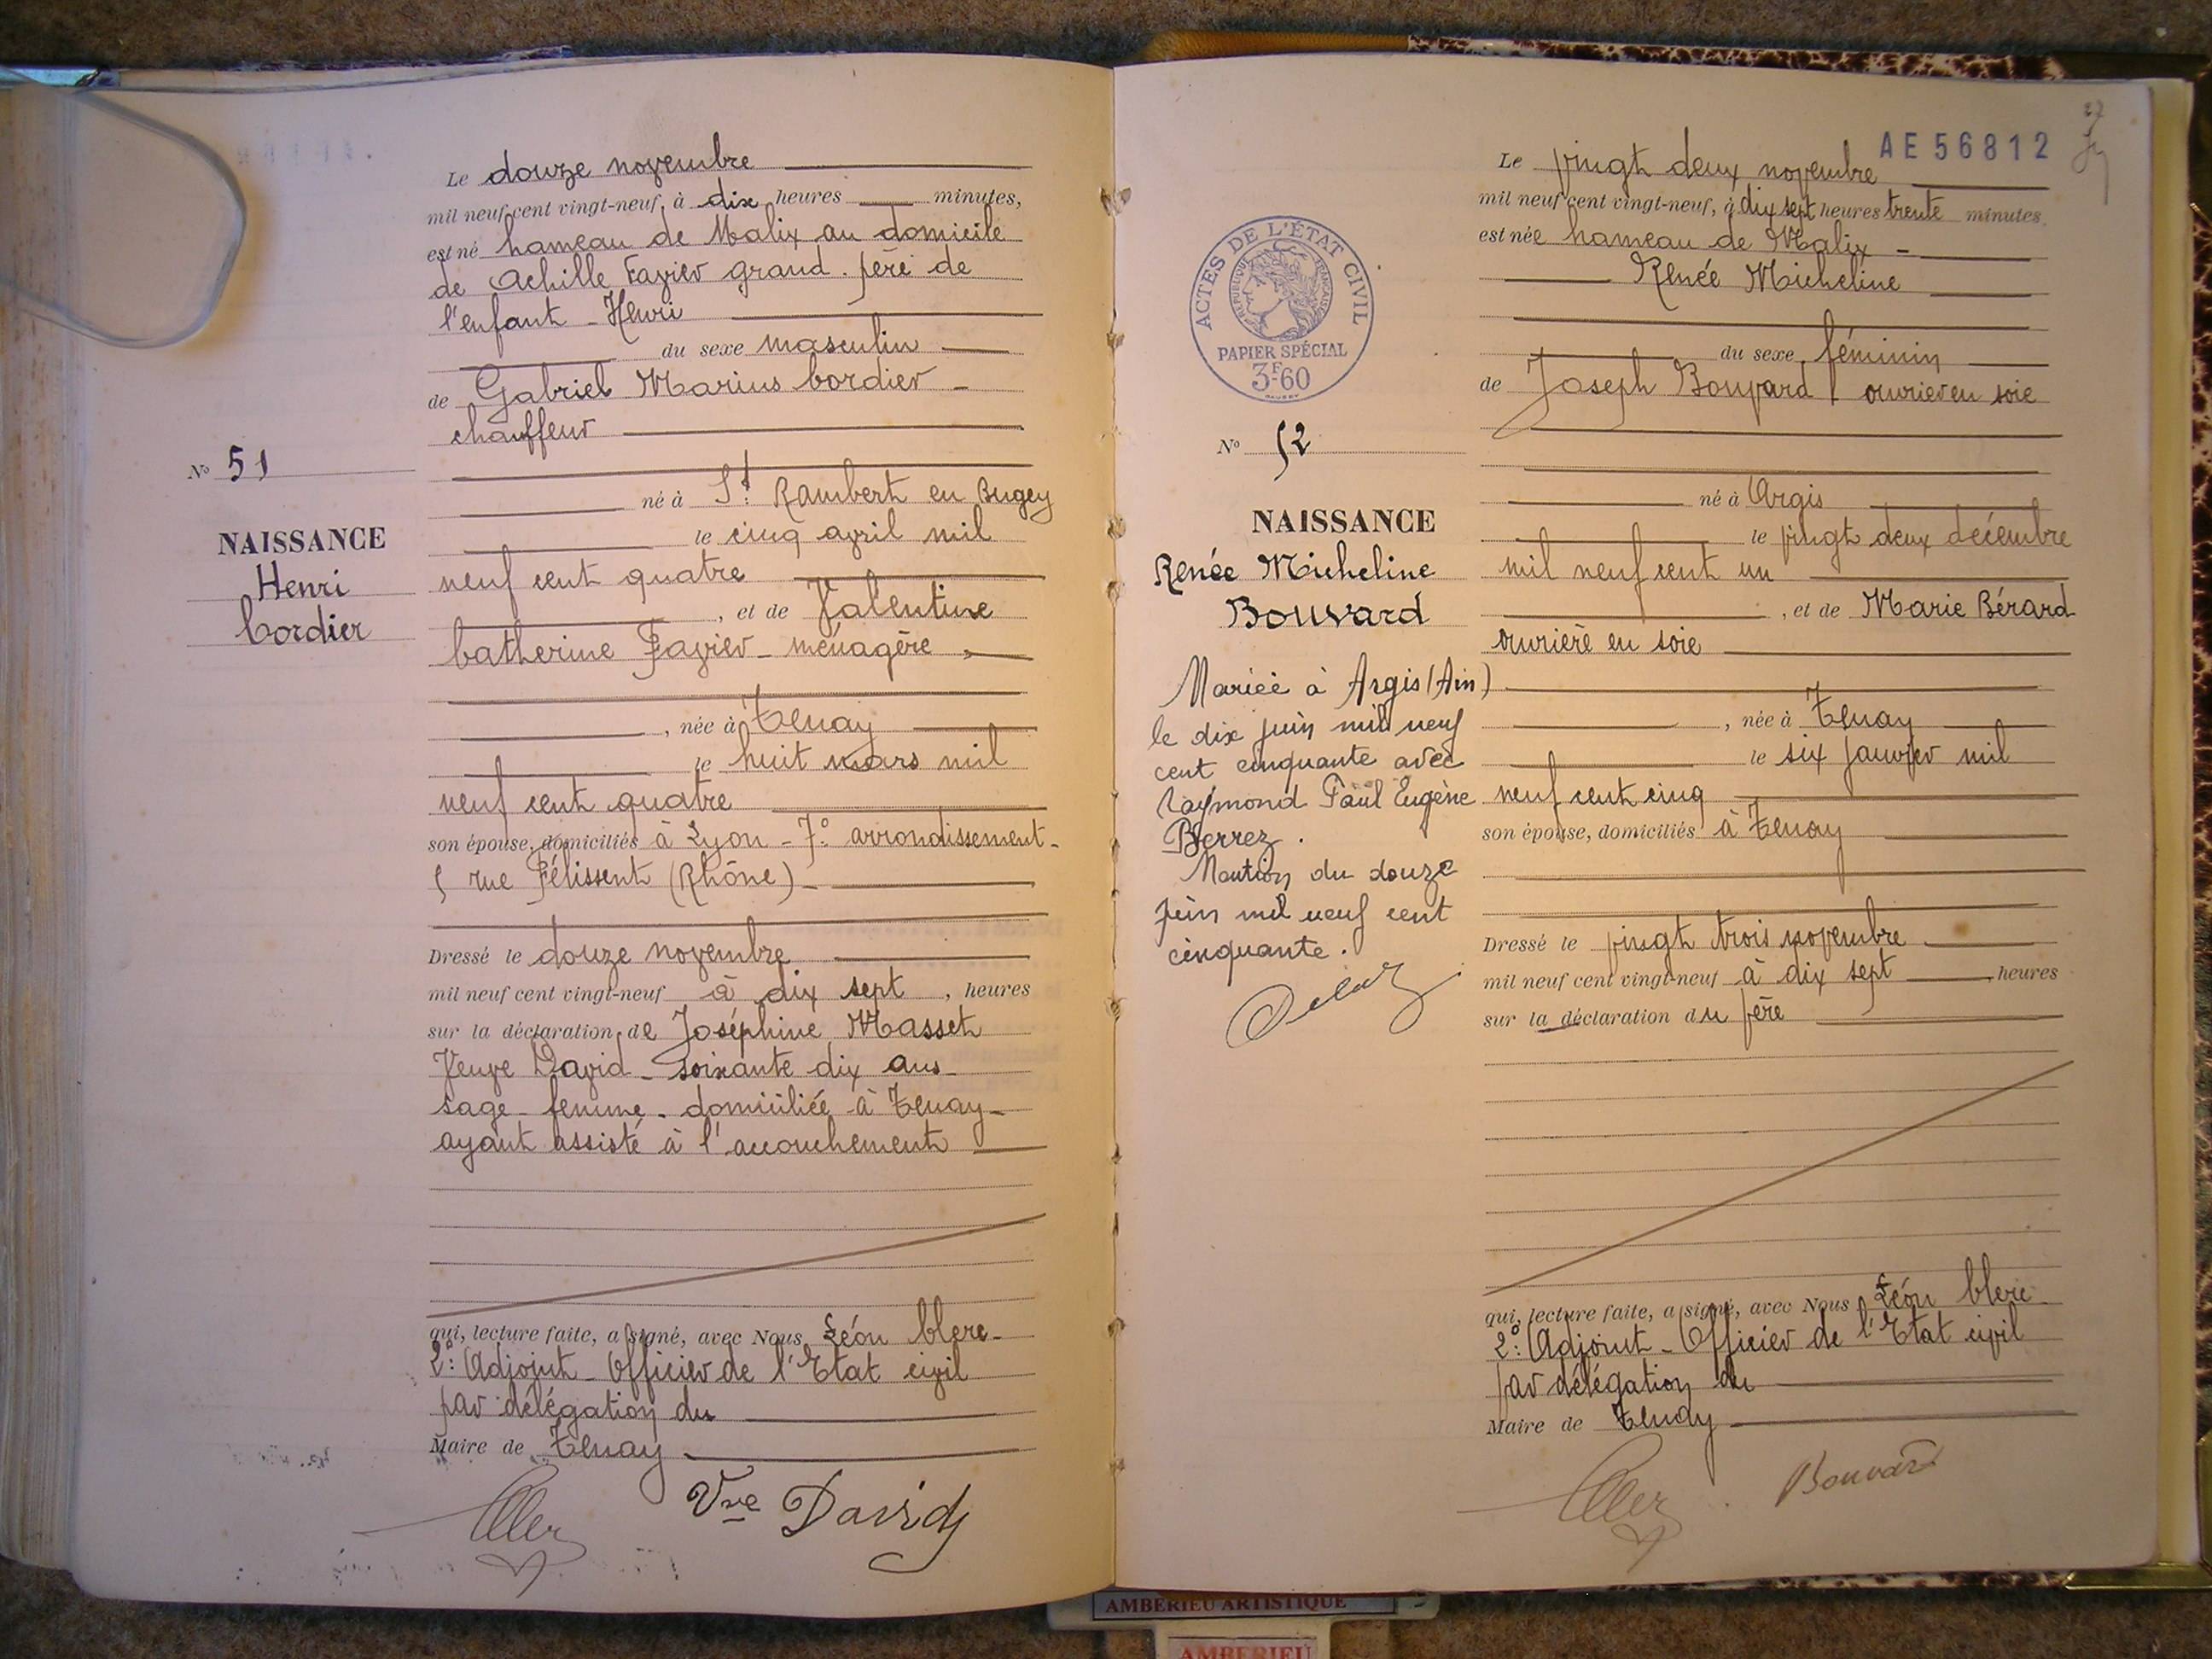 Le douze novembre
mil neuf cent vingt-neuf, à dix heures minutes,
est né hameau de Malix au domicile
de Achille Favier grand-père de
l'enfant - Henri
du sexe masculin
de Gabriel Marius Cordier -
chauffeur
né à St Rambert en Bugey
le cinq avril mil
neuf cent quatre
, et de Valentine
Catherine Favier - ménagère -
, née à Tenay
le huit mars mil
neuf cent quatre
son épouse, domiciliés à Lyon - 7° arrondissement -
5 rue Félissent (Rhône) -
Dressé le douze novembre
mil neuf cent vingt-neuf à dix sept, heures
sur la déclaration de Joséphine Masset
Veuve David - soixante dix ans -
sage-femme - domiciliée à Tenay -
ayant assisté à l'accouchement
qui, lecture faite, a signé, avec Nous Léon Clerc -
2°: Adjoint - Officier de l'Etat civil
par délégation du
Maire de Tenay -
Vve David
N° 51
NAISSANCE
Henri
Cordier
AE 56812
27
Le vingt deux novembre
mil neuf cent vingt-neuf, à dix sept heures trente minutes
est née hameau de Malix -
Renée Micheline
du sexe féminin
de Joseph Bouvard ouvrier en soie
né à Argis
le vingt deux décembre
mil neuf cent un
, et de Marie Bérard
ouvrière en soie
, née à Tenay
le six janvier mil
neuf cent cinq
son épouse, domiciliés à Tenay
Dressé le vingt trois novembre
mil neuf cent vingt-neuf à dix sept heures
sur la déclaration du père
qui, lecture faite, a signé, avec Nous Léon Clerc -
2°: Adjoint - Officier de l'Etat civil
par délégation du
Maire de Tenay
Bouvard
ACTES DE L'ÉTAT CIVIL
RÉPUBLIQUE FRANÇAISE
PAPIER SPÉCIAL
3F60
N° 52
NAISSANCE
Renée Micheline
Bouvard
Mariée à Argis (Ain)
le dix juin mil neuf
cent cinquante avec
Raymond Paul Eugène
Berrez.
Mention du douze
juin mil neuf cent
cinquante.
AMBERIEU ARTISTIQUE
AMBERIEU